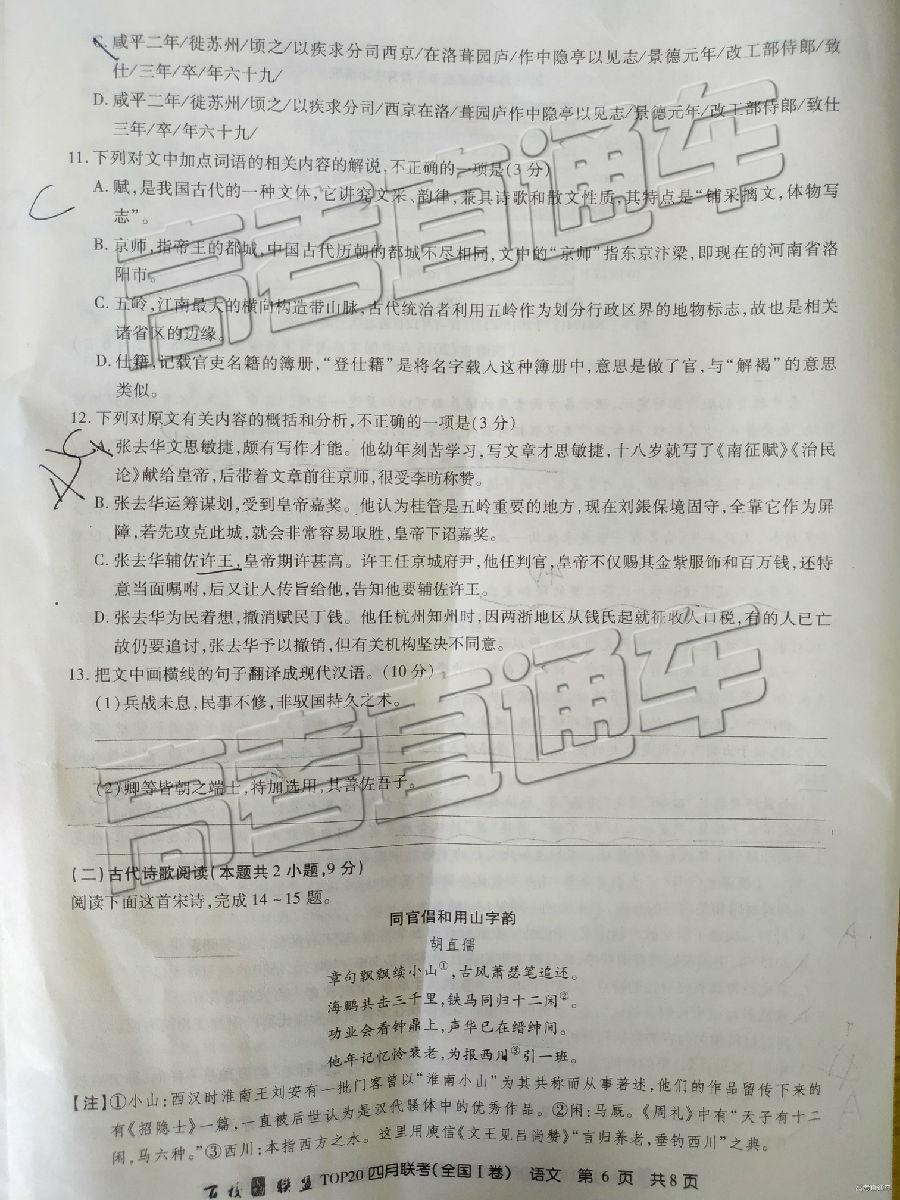 C. 咸平二年/徙苏州/顷之/以疾求分司西京/在洛葺园庐/作中隐亭以见志/景德元年/改工部侍郎/致
仕/三年/卒/年六十九/
D. 咸平二年/徙苏州/顷之/以疾求分司/西京在洛/葺园庐作中隐亭以见志/景德元年/改工部侍郎/致仕
三年/卒/年六十九/
11. 下列对文中加点词语的相关内容的解说,不正确的一项是(3 分)
C
A. 赋,是我国古代的一种文体,它讲究文采、韵律,兼具诗歌和散文性质,其特点是“铺采摛文,体物写
志”。
B. 京师,指帝王的都城,中国古代历朝的都城不尽相同,文中的“京师”指东京汴梁,即现在的河南省洛
阳市。
C. 五岭,江南最大的横向构造带山脉,古代统治者利用五岭作为划分行政区界的地物标志,故也是相关
诸省区的边缘。
D. 仕籍,记载官吏名籍的簿册,“登仕籍”是将名字载入这种簿册中,意思是做了官,与“解褐”的意思
类似。
12. 下列对原文有关内容的概括和分析,不正确的一项是(3 分)
A. 张去华文思敏捷,颇有写作才能。他幼年刻苦学习,写文章才思敏捷,十八岁就写了《南征赋》《治民
论》献给皇帝,后带着文章前往京师,很受李昉称赞。
B. 张去华运筹谋划,受到皇帝嘉奖。他认为桂管是五岭重要的地方,现在刘鋹保境固守,全靠它作为屏
障,若先攻克此城,就会非常容易取胜,皇帝下诏嘉奖。
C. 张去华辅佐许王,皇帝期许甚高。许王任京城府尹,他任判官,皇帝不仅赐其金紫服饰和百万钱,还特
意当面嘱咐,后又让人传旨给他,告知他要辅佐许王。
D. 张去华为民着想,撤消赋民丁钱。他任杭州知州时,因两浙地区从钱氏起就征收人口税,有的人已亡
故仍要追讨,张去华予以撤销,但有关机构坚决不同意。
13. 把文中画横线的句子翻译成现代汉语。(10 分)
(1)兵战未息,民事不修,非驭国持久之术。
(2)卿等皆朝之端士,特加选用,其善佐吾子。
(二)古代诗歌阅读(本题共 2 小题,9 分)
阅读下面这首宋诗,完成 14~15 题。
同官倡和用山字韵
胡直孺
章句飘飘续小山①,古风萧瑟笔追还。
海鹏共击三千里,铁马同归十二闲②。
功业会看钟鼎上,声华已在缙绅间。
他年记忆怜衰老,为报西川③引一班。
【注】①小山:西汉时淮南王刘安有一批门客曾以“淮南小山”为其共称而从事著述,他们的作品留传下来的
有《招隐士》一篇,一直被后世认为是汉代骚体中的优秀作品。②闲:马厩。《周礼》中有“天子有十二
闲,马六种。”③西川:本指西方之水。这里用庾信《文王见吕尚赞》“言归养老,垂钓西川”之典。
百校联盟 TOP20 四月联考(全国Ⅰ卷) 语文 第 6 页 共 8 页
高考直通车
高考直通车